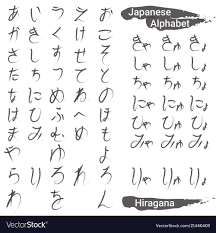 Japanese
Alphabet
あ い う え お
か き く け こ
さ し す せ そ
た ち つ て と
な に ぬ ね の
は ひ ふ へ ほ
ま み む め も
や ゆ よ
ら り る れ ろ
わ を ん
きゃ きゅ きょ
しゃ しゅ しょ
ちゃ ちゅ ちょ
にゃ にゅ にょ
ひゃ ひゅ ひょ
みゃ みゅ みょ
りゃ りゅ りょ
Hiragana
VectorStock